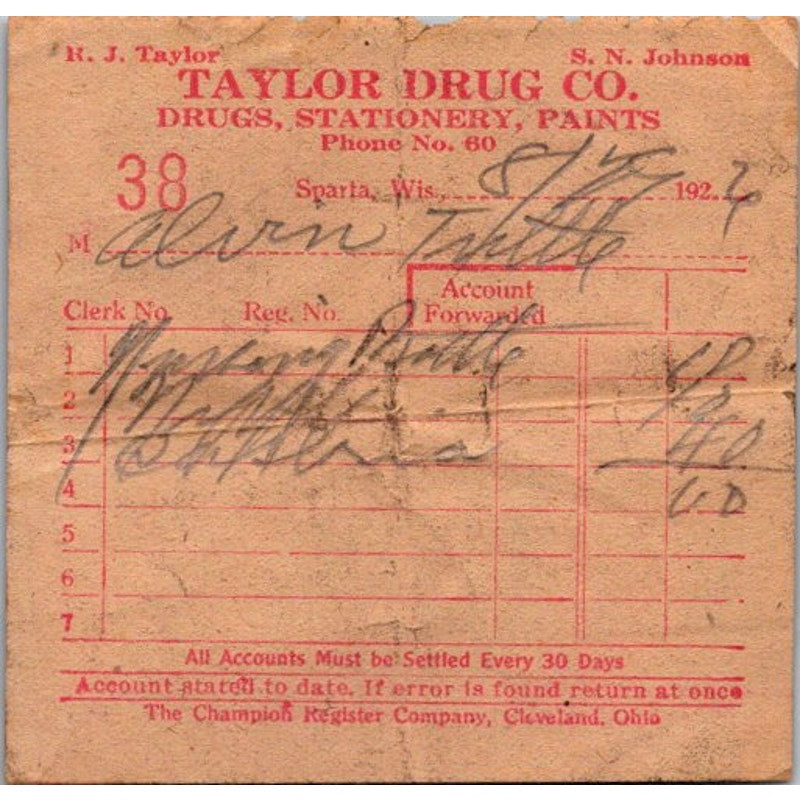 R. J. Taylor S. N. Johnson
TAYLOR DRUG CO.
DRUGS, STATIONERY, PAINTS
Phone No. 60
38 Sparta, Wis., 8/ 192 6
M Alvin Tuttle
Clerk No. Reg. No. Account Forwarded
1 Nursing Bottle
2 Nipple
3 40
4
5
6
7
All Accounts Must be Settled Every 30 Days
Account stated to date. If error is found return at once
The Champion Register Company, Cleveland, Ohio